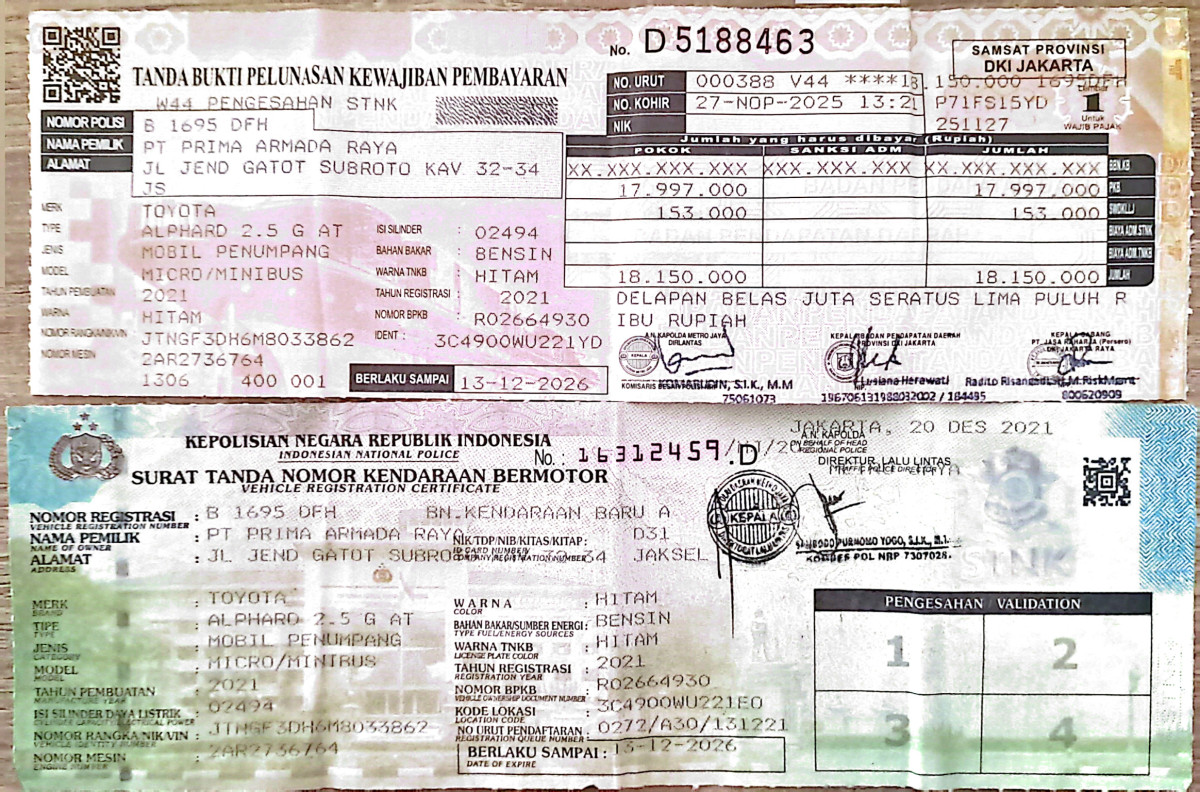 No. D 5188463
SAMSAT PROVINSI
DKI JAKARTA
TANDA BUKTI PELUNASAN KEWAJIBAN PEMBAYARAN
W44 PENGESAHAN STNK
NO. URUT 000388 V44 ****18.150.000 1695DFH
NO. KOHIR 27-NOP-2025 13:21 P71FS15YD
NIK 251127
1
Untuk
WAJIB PAJAK
NOMOR POLISI B 1695 DFH
NAMA PEMILIK PT PRIMA ARMADA RAYA
ALAMAT JL JEND GATOT SUBROTO KAV 32-34
JS
Jumlah yang harus dibayar (Rupiah)
POKOK SANKSI ADM JUMLAH
XX.XXX.XXX.XXX XXX.XXX.XXX XX.XXX.XXX.XXX BBN.KB
17.997.000 17.997.000 PKB
153.000 153.000 SWDKLLJ
BIAYA ADM.STNK
BIAYA ADM.TNKB
18.150.000 18.150.000 JUMLAH
DELAPAN BELAS JUTA SERATUS LIMA PULUH R
IBU RUPIAH
MERK TOYOTA
TYPE ALPHARD 2.5 G AT ISI SILINDER : 02494
JENIS MOBIL PENUMPANG BAHAN BAKAR : BENSIN
MODEL MICRO/MINIBUS WARNA TNKB : HITAM
TAHUN PEMBUATAN 2021 TAHUN REGISTRASI : 2021
WARNA HITAM NOMOR BPKB : R02664930
NOMOR RANGKA/NIK/VIN JTNGF3DH6M8033862 IDENT : 3C4900WU221YD
NOMOR MESIN 2AR2736764
1306 400 001 BERLAKU SAMPAI 13-12-2026
A.N. KAPOLDA METRO JAYA
DIRLANTAS
KOMARUDIN, S.I.K., M.M
75061073
KEPALA BADAN PENDAPATAN DAERAH
PROVINSI DKI JAKARTA
Lusiana Herawati
196706131988032002 / 184495
KEPALA CABANG
PT JASA RAHARJA (Persero)
DKI JAKARTA RAYA
800620909
KEPOLISIAN NEGARA REPUBLIK INDONESIA
INDONESIAN NATIONAL POLICE
No. : 16312459 .D
SURAT TANDA NOMOR KENDARAAN BERMOTOR
VEHICLE REGISTRATION CERTIFICATE
JAKARTA, 20 DES 2021
A.N. KAPOLDA
ON BEHALF OF HEAD
REGIONAL POLICE
DIREKTUR LALU LINTAS
TRAFFIC POLICE DIRECTOR
KEPALA
SAMBODO PURNOMO YOGO, S.I.K., M.T.
KOMBES POL NRP 7307028.
STNK
NOMOR REGISTRASI : B 1695 DFH BN.KENDARAAN BARU A
VEHICLE REGISTRATION NUMBER
NAMA PEMILIK : PT PRIMA ARMADA RAYA NIK/TDP/NIB/KITAS/KITAP : D31
NAME OF OWNER ID CARD NUMBER
COMPANY REGISTRATION NUMBER
ALAMAT : JL JEND GATOT SUBRO 34 JAKSEL
ADDRESS
MERK : TOYOTA
BRAND
TIPE : ALPHARD 2.5 G AT
TYPE
JENIS : MOBIL PENUMPANG
CATEGORY
MODEL : MICRO/MINIBUS
MODEL
TAHUN PEMBUATAN : 2021
MANUFACTURE YEAR
ISI SILINDER/DAYA LISTRIK : 02494
CYLINDER CAPACITY/ELECTRICAL POWER
NOMOR RANGKA/NIK/VIN : JTNGF3DH6M8033862
VEHICLE IDENTITY NUMBER
NOMOR MESIN : 2AR2736764
ENGINE NUMBER
WARNA : HITAM
COLOR
BAHAN BAKAR/SUMBER ENERGI : BENSIN
TYPE FUEL/ENERGY SOURCES
WARNA TNKB : HITAM
LICENSE PLATE COLOR
TAHUN REGISTRASI : 2021
REGISTRATION YEAR
NOMOR BPKB : R02664930
VEHICLE OWNERSHIP DOCUMENT NUMBER
KODE LOKASI : 3C4900WU221EO
LOCATION CODE
NO URUT PENDAFTARAN : 0272/A30/131221
REGISTRATION QUEUE NUMBER
BERLAKU SAMPAI : 13-12-2026
DATE OF EXPIRE
PENGESAHAN / VALIDATION
1 2
3 4